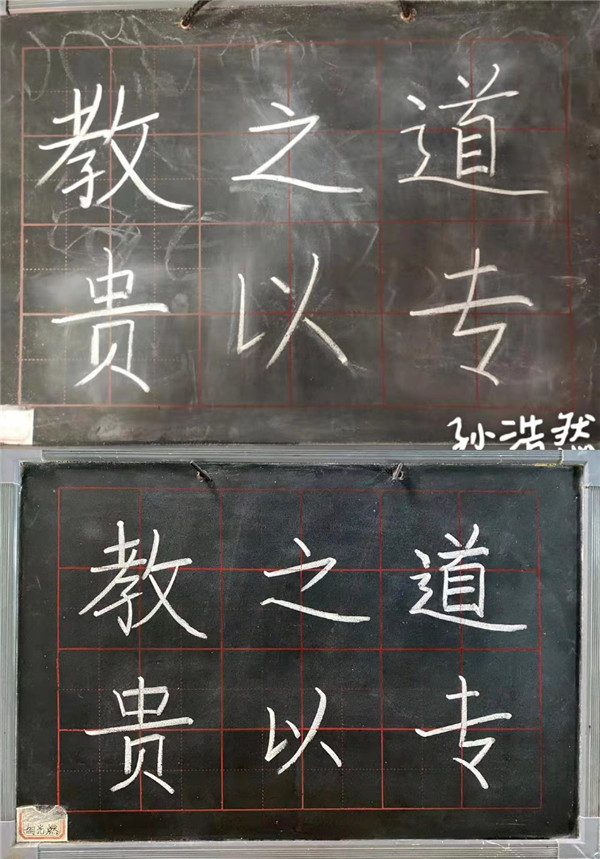 教之道
贵以专
孙浩然
教之道
贵以专